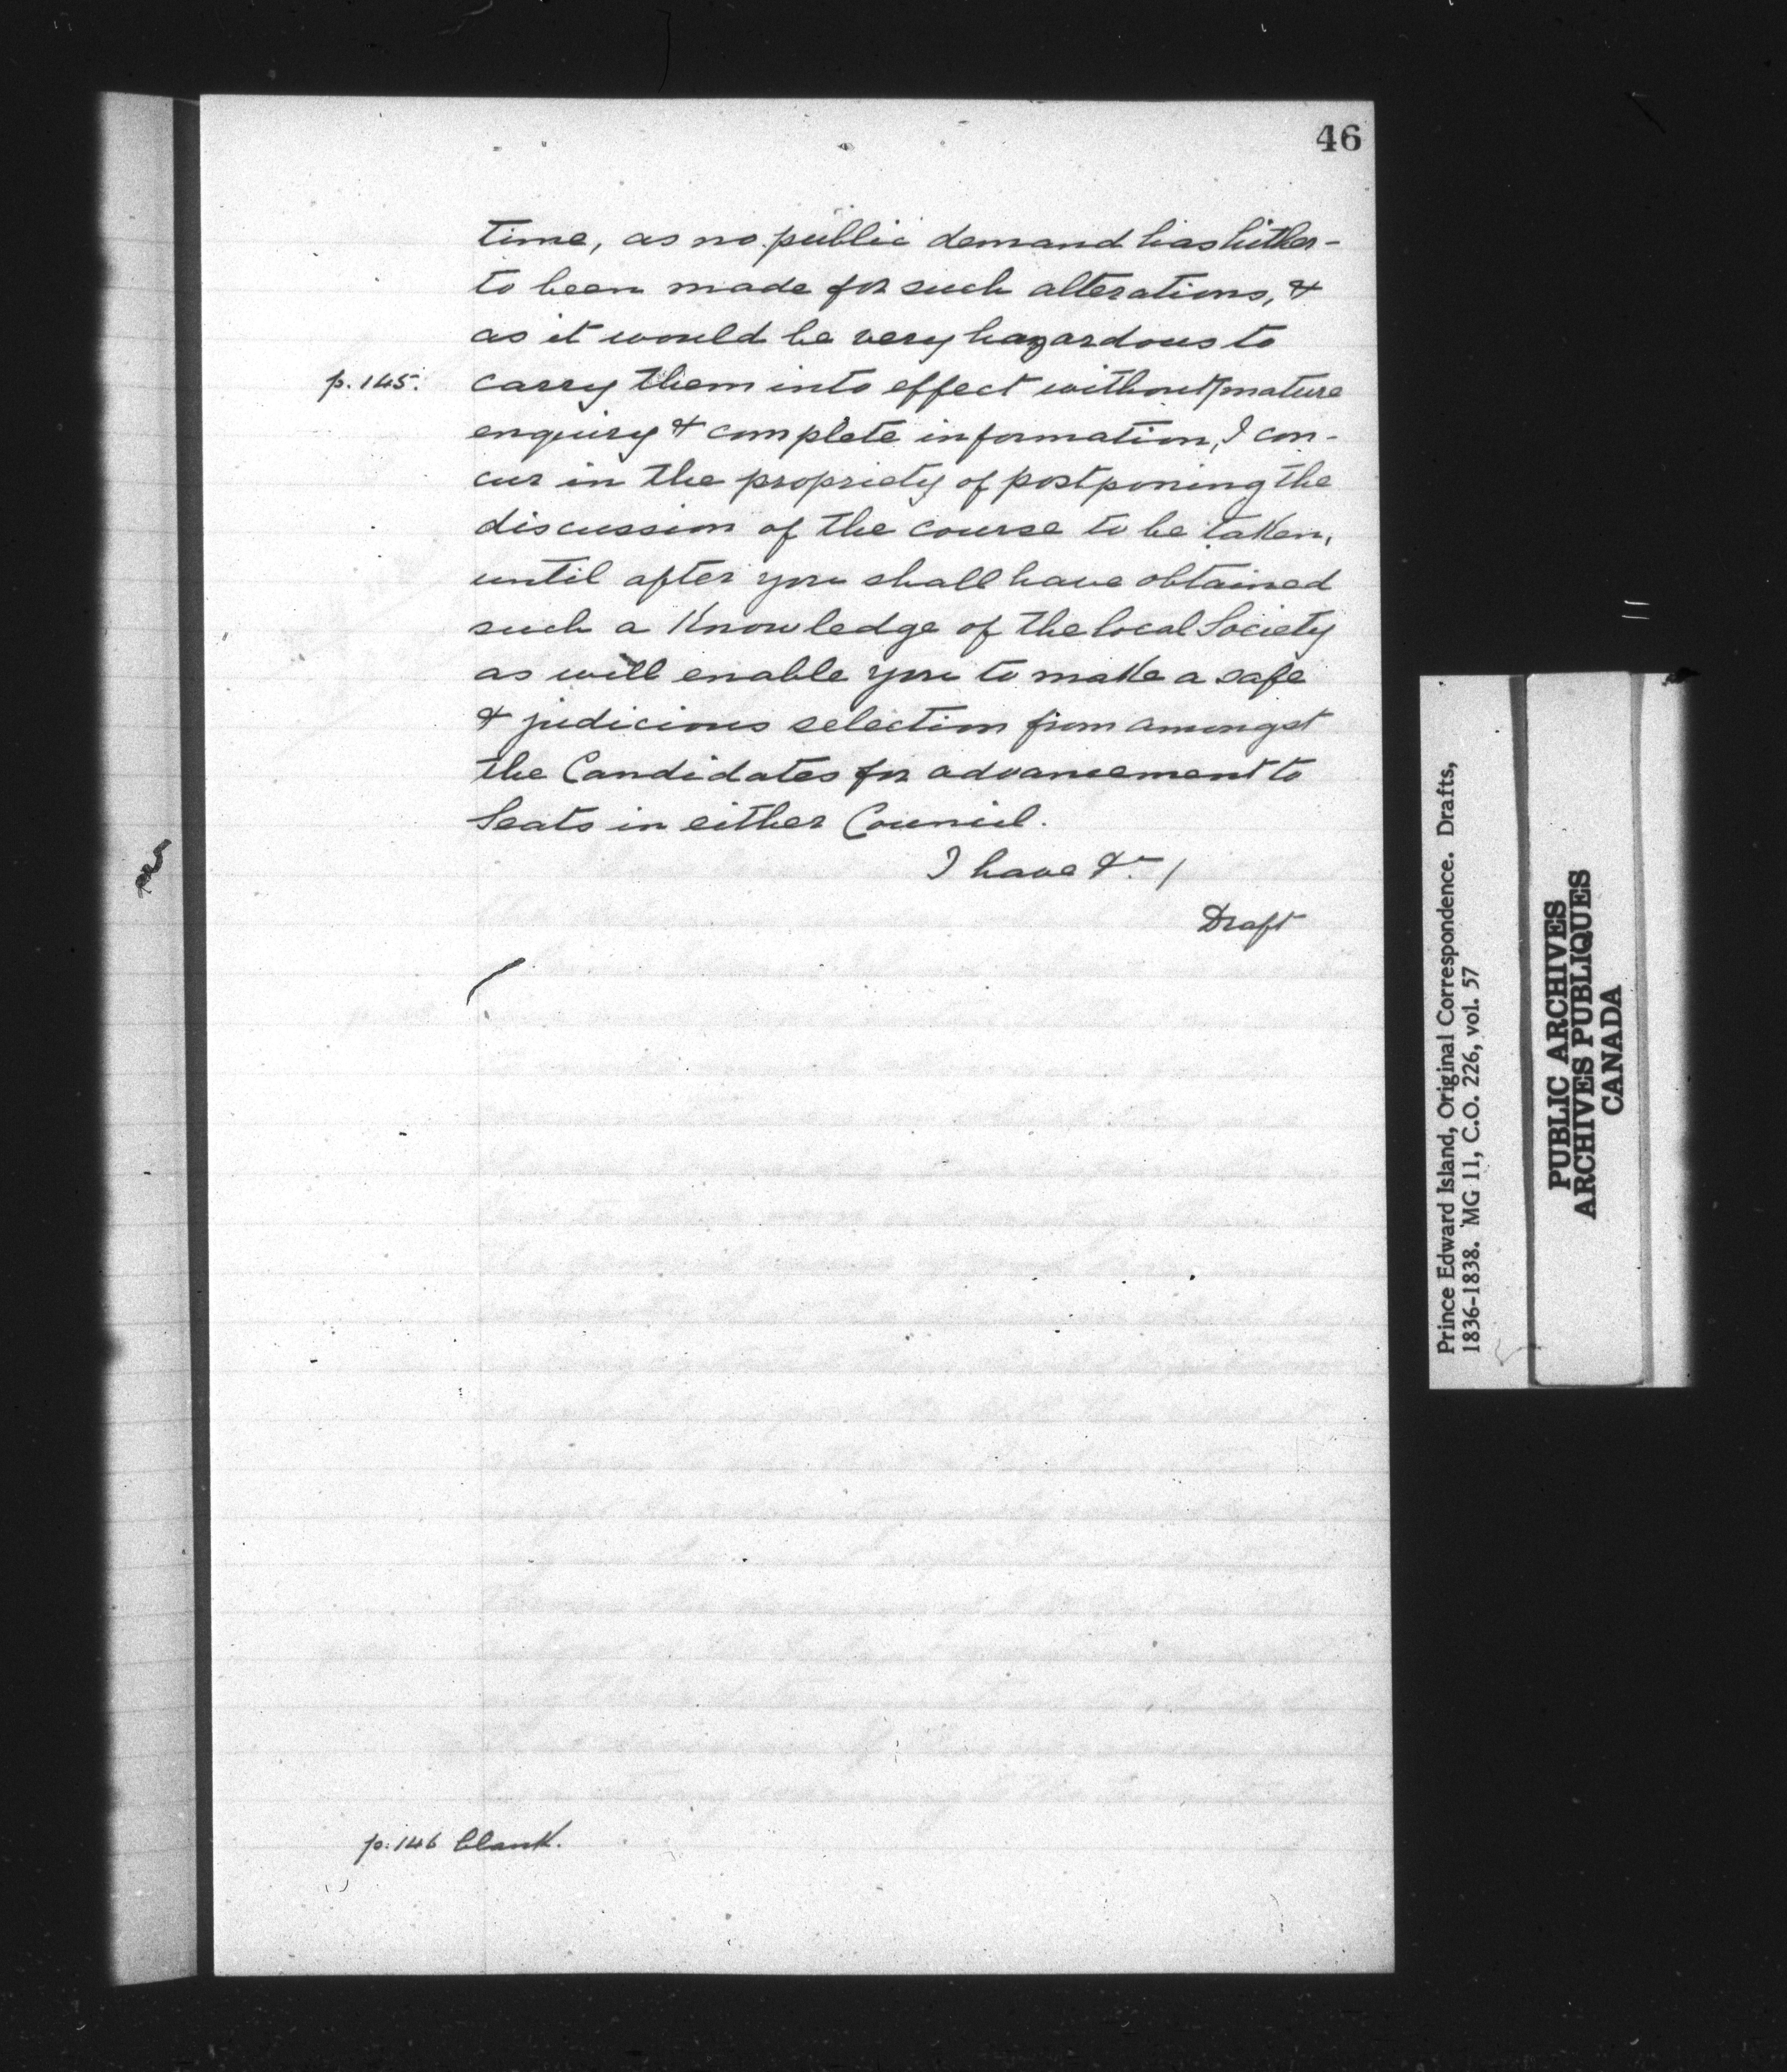 46
time, as no public demand has hither-
to been made for such alterations, &
as it would be very hazardous to
p. 145. carry them into effect without/mature
enquiry & complete information, I con-
cur in the propriety of postponing the
discussion of the course to be taken,
until after you shall have obtained
such a Knowledge of the local Society
as will enable you to make a safe
& judicious selection from amongst
the Candidates for advancement to
Seats in either Council.
I have &c /
Draft
p. 146 blank.
Prince Edward Island, Original Correspondence. Drafts,
1836-1838. MG 11, C.O. 226, vol. 57
PUBLIC ARCHIVES
ARCHIVES PUBLIQUES
CANADA